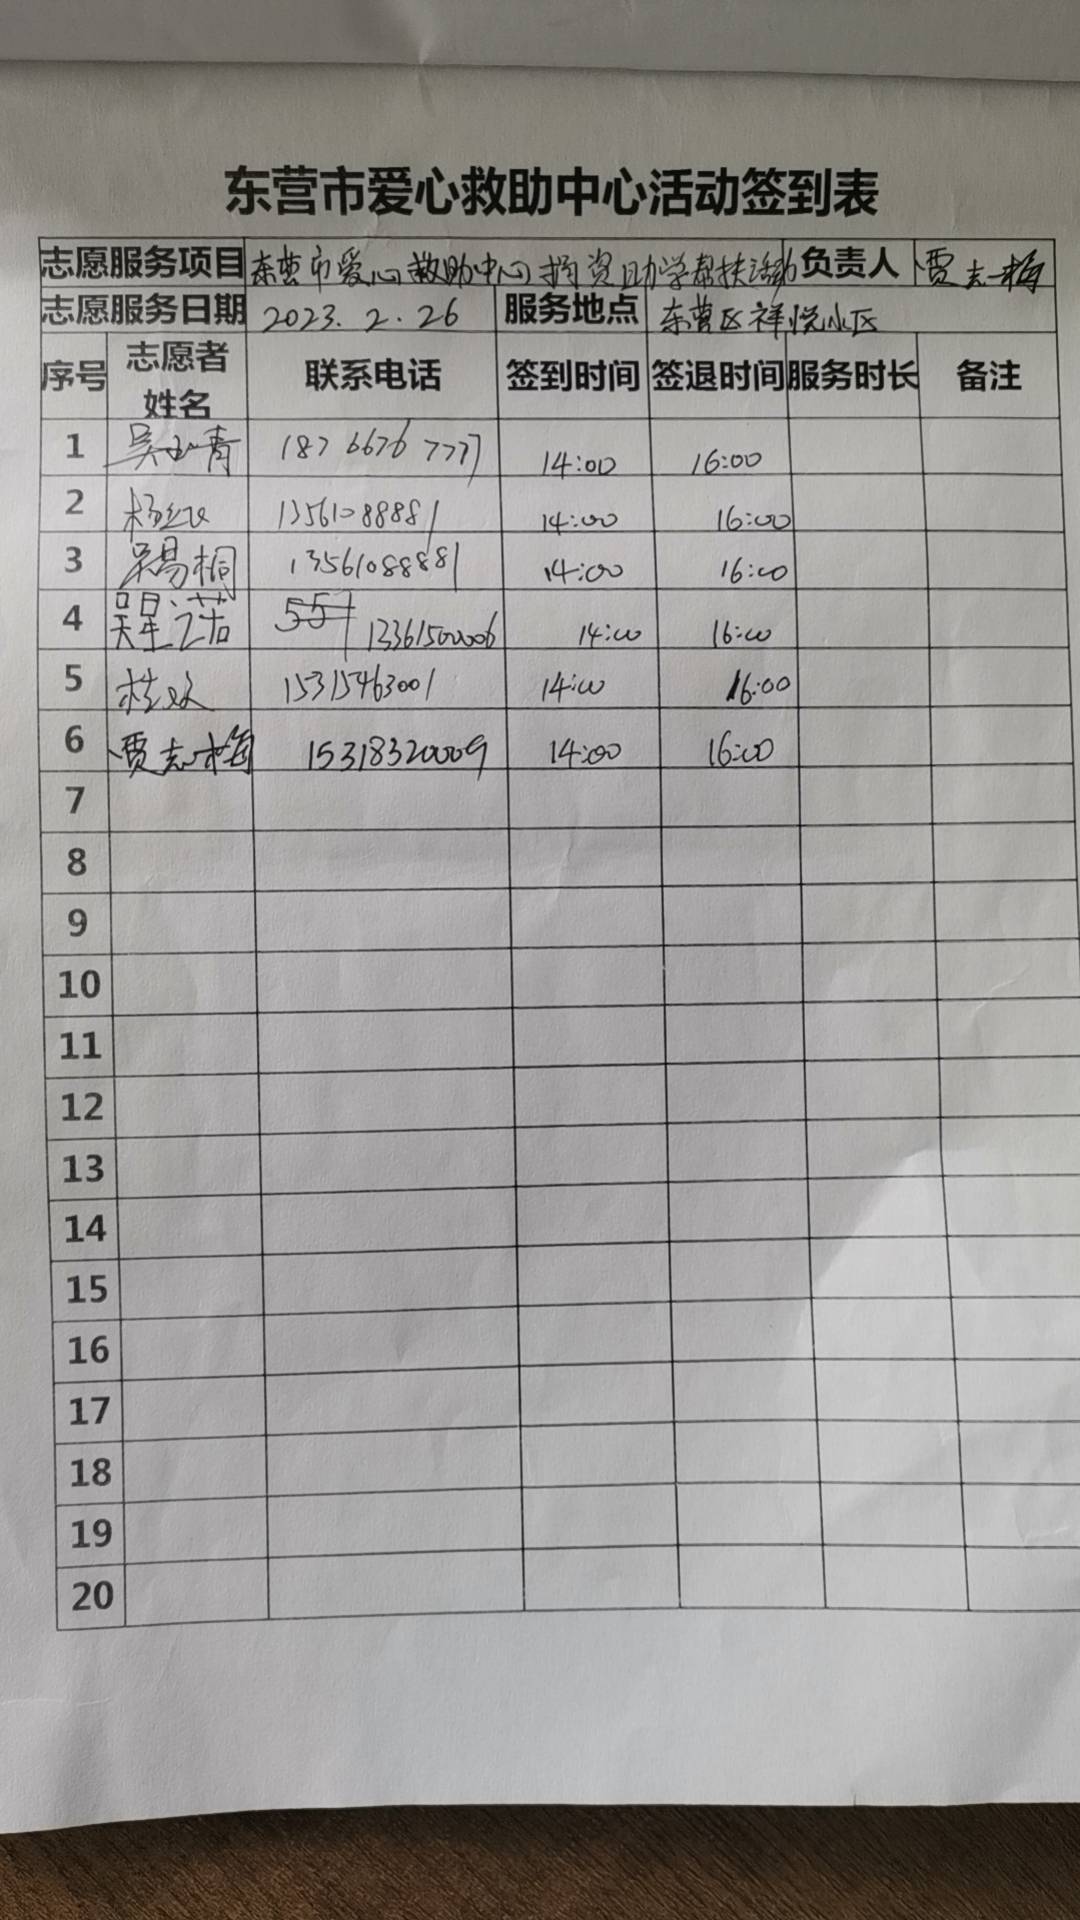 东营市爱心救助中心活动签到表
志愿服务项目 东营市爱心救助中心捐资助学帮扶活动 负责人 贾志梅
志愿服务日期 2023.2.26 服务地点 东营区祥悦小区
序号 志愿者姓名 联系电话 签到时间 签退时间 服务时长 备注
1 吴玉青 18766767777 14:00 16:00
2 杨红 13561088881 14:00 16:00
3 吴易桐 13561088881 14:00 16:00
4 13361500006 14:00 16:00
5 15315463001 14:00 16:00
6 贾志梅 15318320009 14:00 16:00
7
8
9
10
11
12
13
14
15
16
17
18
19
20